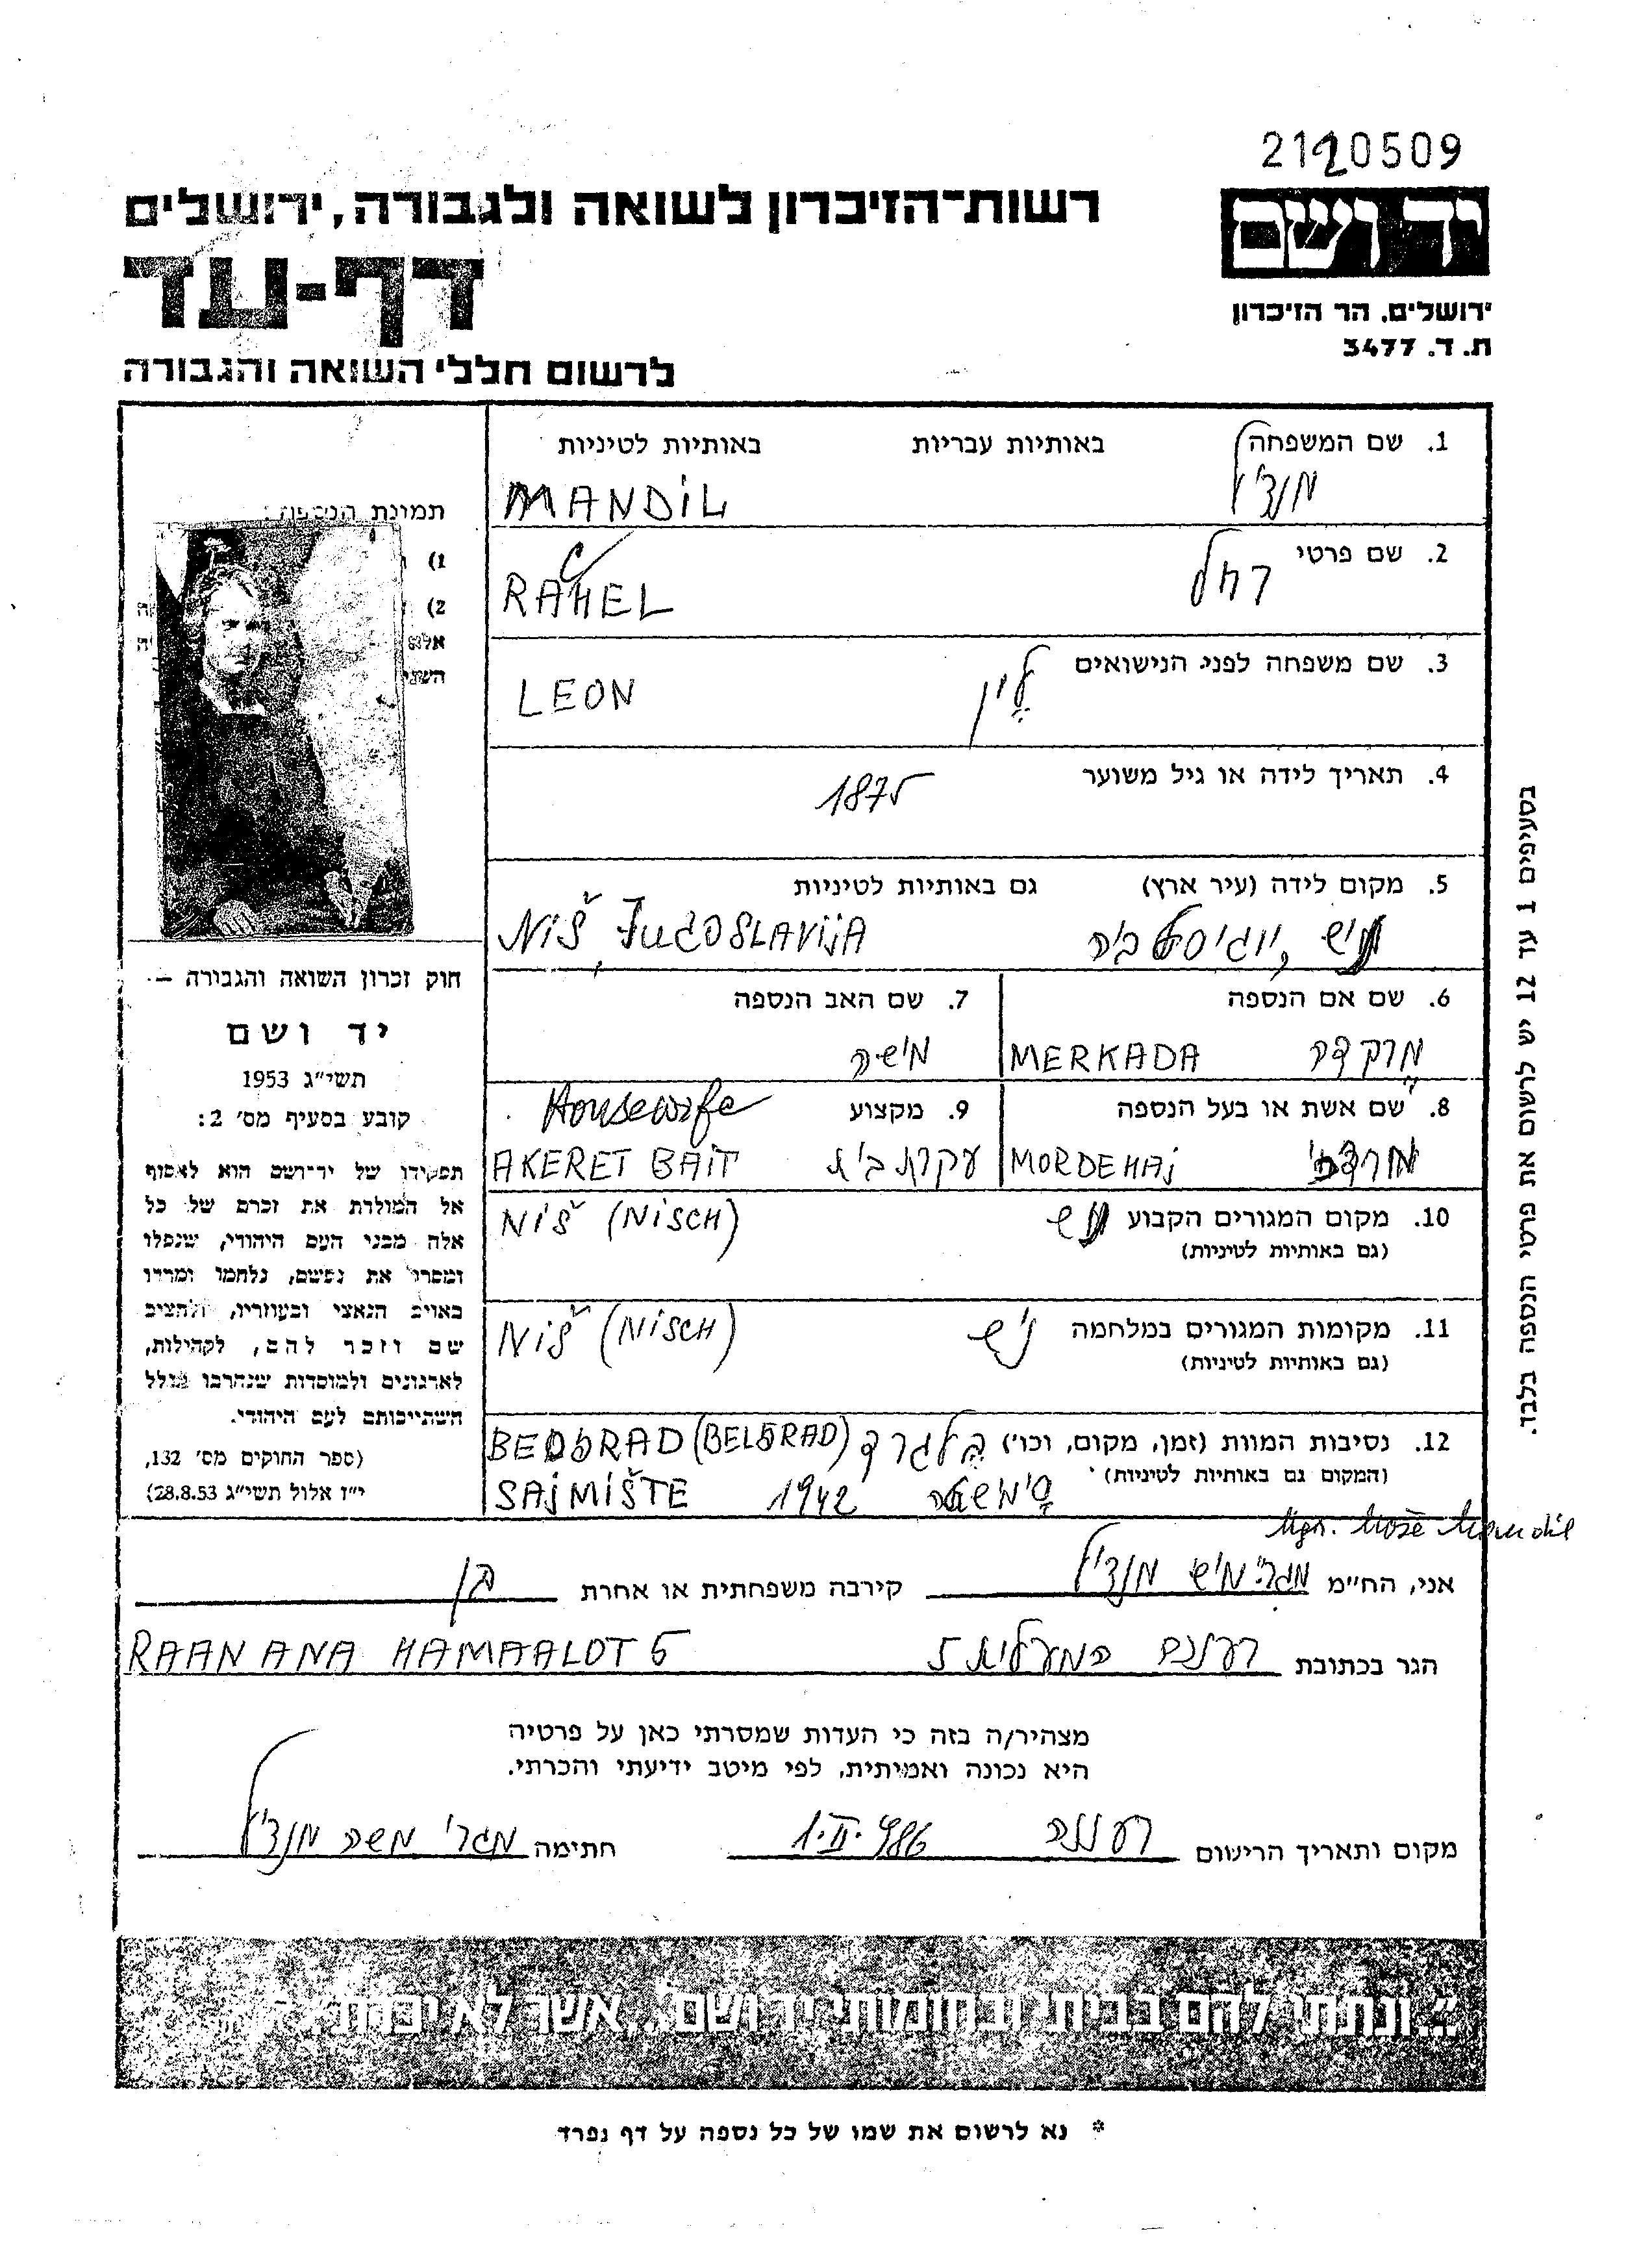 2120509
יד ושם
רשות־הזיכרון לשואה ולגבורה, ירושלים
דף-עד
ירושלים, הר הזיכרון
ת. ד. 3477
לרשום חללי השואה והגבורה
1. שם המשפחה באותיות עבריות באותיות לטיניות
מנדיל MANDIL
2. שם פרטי
רחל RAHEL
C
3. שם משפחה לפני הנישואים
ליון LEON
4. תאריך לידה או גיל משוער
1875
5. מקום לידה (עיר ארץ) גם באותיות לטיניות
ניש, יוגוסלביה NIŠ, JUGOSLAVIJA
6. שם אם הנספה
מרקדה MERKADA
7. שם האב הנספה
מושה
8. שם אשת או בעל הנספה
מרדכי MORDEHAJ
9. מקצוע Housewife
עקרת בית AKERET BAIT
10. מקום המגורים הקבוע ניש NIŠ (NISCH)
(גם באותיות לטיניות)
11. מקומות המגורים במלחמה ניש NIŠ (NISCH)
(גם באותיות לטיניות)
12. נסיבות המוות (זמן, מקום, וכו') בלגרד BEOGRAD (BELGRAD)
(המקום גם באותיות לטיניות) 1942 SAJMIŠTE
בסעיפים 1 עד 12 יש לרשום את פרטי הנספה בלבד.
תמונת הנספה:
1)
2)
חוק זכרון השואה והגבורה —
יד ושם
תשי"ג 1953
קובע בסעיף מס' 2:
תפקידו של יד־ושם הוא לאסוף
אל המולדת את זכרם של כל
אלה מבני העם היהודי, שנפלו
ומסרו את נפשם, נלחמו ומרדו
באויב הנאצי ובעוזריו, ולהציב
שם וזכר להם, לקהילות,
לארגונים ולמוסדות שנחרבו בגלל
השתייכותם לעם היהודי.
(ספר החוקים מס' 132,
י"ז אלול תשי"ג 28.8.53)
Mgr. Moše Mandil
אני, הח"מ מגר. מושה מנדיל קירבה משפחתית או אחרת בן
הגר בכתובת רעננה המעלות 5 RAANANA HAMAALOT 5
מצהיר/ה בזה כי העדות שמסרתי כאן על פרטיה
היא נכונה ואמיתית, לפי מיטב ידיעתי והכרתי.
מקום ותאריך הרישום רעננה 1.II.986 חתימה מגר' משה מנדיל
"...ונתתי להם בביתי ובחומותי יד ושם... אשר לא יכרת"
* נא לרשום את שמו של כל נספה על דף נפרד